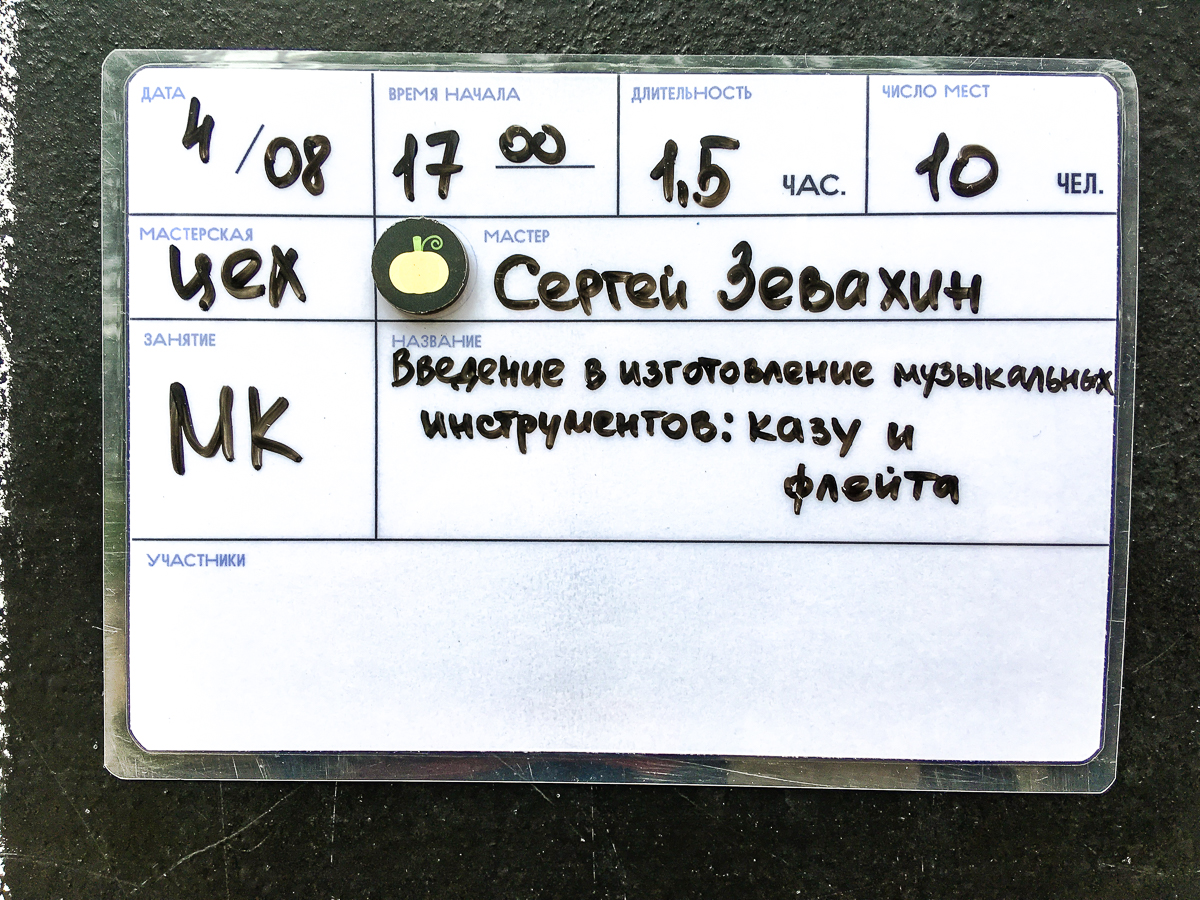 ДАТА
4/08
ВРЕМЯ НАЧАЛА
17 00
ДЛИТЕЛЬНОСТЬ
1,5 ЧАС.
ЧИСЛО МЕСТ
10 ЧЕЛ.
МАСТЕРСКАЯ
цех
МАСТЕР
Сергей Зевахин
ЗАНЯТИЕ
МК
НАЗВАНИЕ
Введение в изготовление музыкальных
инструментов: казу и
флейта
УЧАСТНИКИ